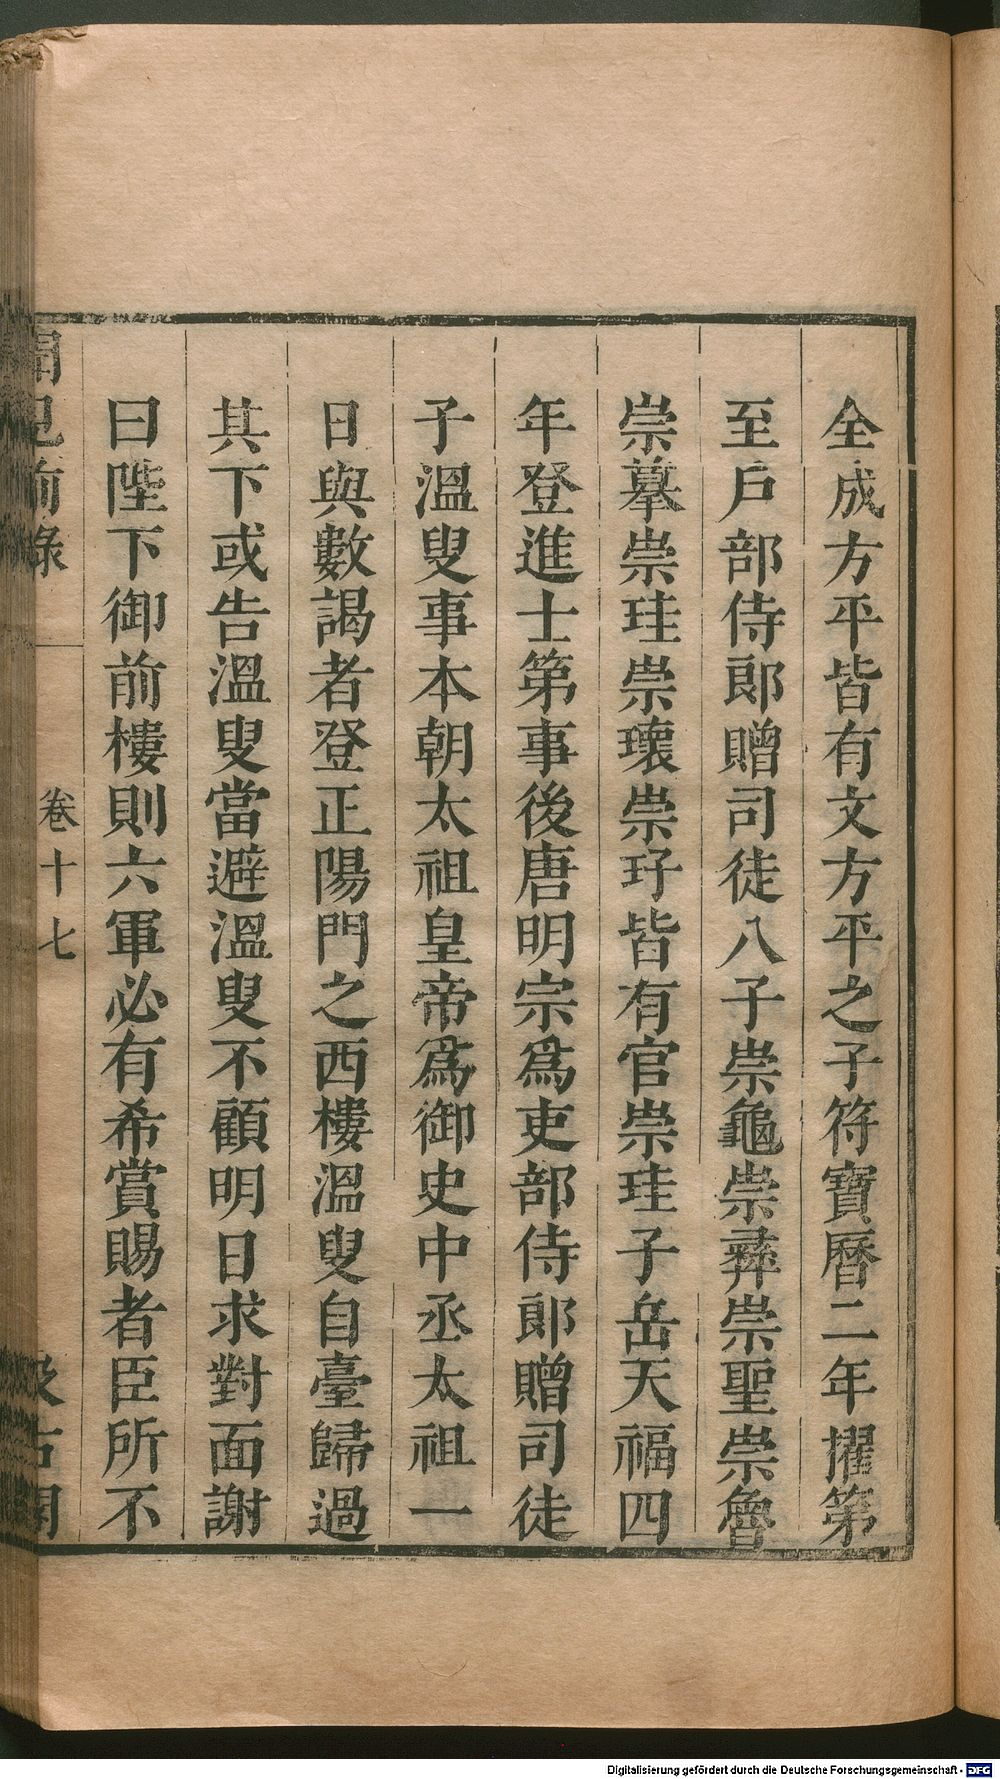 全成方平皆有文方平之子符寶曆二年擢第
至戶部侍郎贈司徒八子崇龜崇彝崇聖崇魯
崇摹崇珪崇瓌崇玗皆有官崇珪子岳天福四
年登進士第事後唐明宗爲吏部侍郎贈司徒
子溫叟事本朝太祖皇帝爲御史中丞太祖一
日與數謁者登正陽門之西樓溫叟自臺歸過
其下或告溫叟當避溫叟不顧明日求對面謝
曰陛下御前樓則六軍必有希賞賜者臣所不
聞見前錄 卷十七 汲古閣
Digitalisierung gefördert durch die Deutsche Forschungsgemeinschaft - DFG